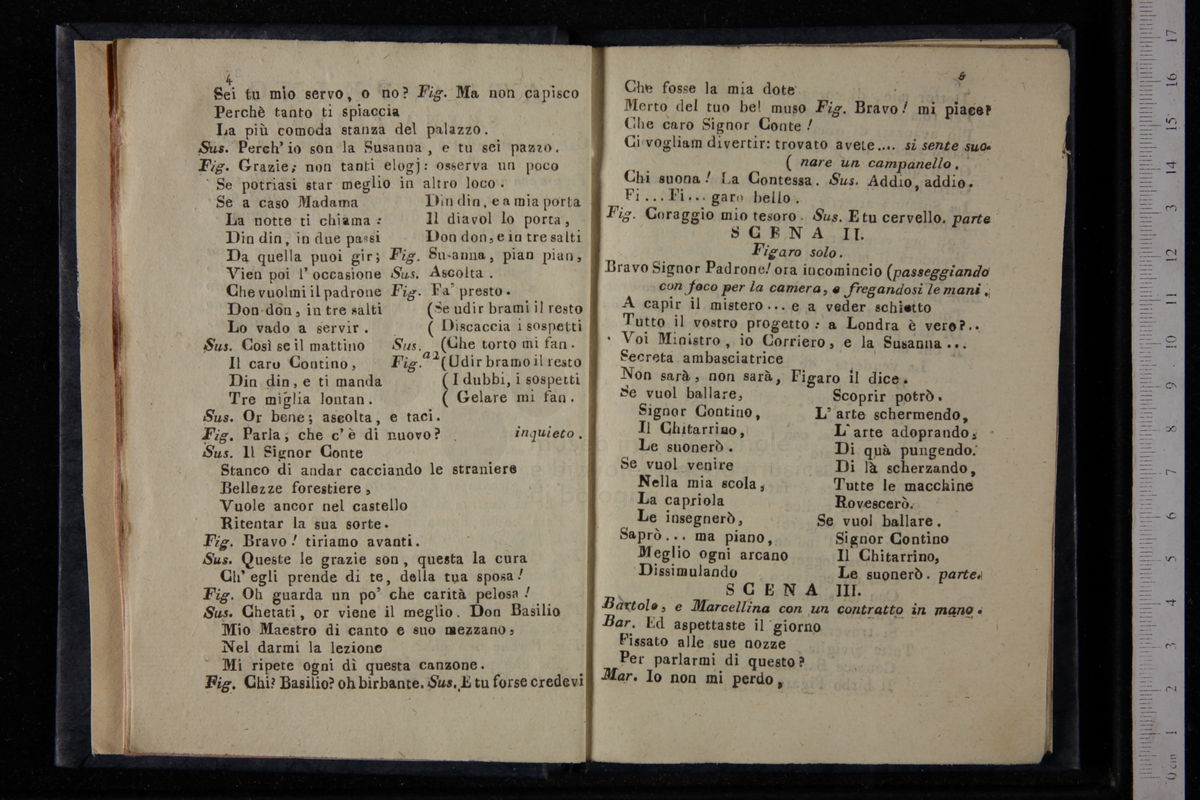 4
Sei tu mio servo, o no? Fig. Ma non capisco
Perchè tanto ti spiaccia
La più comoda stanza del palazzo.
Sus. Perch' io son la Susanna, e tu sei pazzo.
Fig. Grazie; non tanti elogj: osserva un poco
Se potriasi star meglio in altro loco.
Se a caso Madama
La notte ti chiama:
Din din, in due passi
Da quella puoi gir;
Vien poi l'occasione
Che vuolmi il padrone
Don don, in tre salti
Lo vado a servir.
Sus. Così se il mattino
Il caro Contino,
Din din, e ti manda
Tre miglia lontan.
Din din, e a mia porta
Il diavol lo porta,
Don don, e in tre salti
Fig. Susanna, pian pian,
Sus. Ascolta.
Fig. Fa' presto.
(Se udir brami il resto
( Discaccia i sospetti
Sus. (Che torto mi fan.
Fig. a2 (Udir bramo il resto
( I dubbi, i sospetti
( Gelare mi fan.
Sus. Or bene; ascolta, e taci.
Fig. Parla, che c'è di nuovo? inquieto.
Sus. Il Signor Conte
Stanco di andar cacciando le straniere
Bellezze forestiere,
Vuole ancor nel castello
Ritentar la sua sorte.
Fig. Bravo! tiriamo avanti.
Sus. Queste le grazie son, questa la cura
Ch' egli prende di te, della tua sposa!
Fig. Oh guarda un po' che carità pelosa!
Sus. Chetati, or viene il meglio. Don Basilio
Mio Maestro di canto e suo mezzano,
Nel darmi la lezione
Mi ripete ogni dì questa canzone.
Fig. Chi? Basilio? oh birbante. Sus. E tu forse credevi
5
Che fosse la mia dote
Merto del tuo bel muso Fig. Bravo! mi piace?
Che caro Signor Conte!
Ci vogliam divertir: trovato avete.... si sente suo-
( nare un campanello.
Chi suona! La Contessa. Sus. Addio, addio.
Fi...Fi...garo bello.
Fig. Coraggio mio tesoro. Sus. E tu cervello. parte
SCENA II.
Figaro solo.
Bravo Signor Padrone! ora incomincio (passeggiando
con foco per la camera, e fregandosi le mani.
A capir il mistero... e a veder schietto
Tutto il vostro progetto: a Londra è vero?..
Voi Ministro, io Corriero, e la Susanna...
Secreta ambasciatrice
Non sarà, non sarà, Figaro il dice.
Se vuol ballare,
Signor Contino,
Il Chitarrino,
Le suonerò.
Se vuol venire
Nella mia scola,
La capriola
Le insegnerò,
Saprò... ma piano,
Meglio ogni arcano
Dissimulando
Scoprir potrò.
L'arte schermendo,
L'arte adoprando,
Di quà pungendo.
Di là scherzando,
Tutte le macchine
Rovescerò.
Se vuol ballare.
Signor Contino
Il Chitarrino,
Le suonerò. parte.
SCENA III.
Bartolo, e Marcellina con un contratto in mano.
Bar. Ed aspettaste il giorno
Fissato alle sue nozze
Per parlarmi di questo?
Mar. Io non mi perdo,
0 cm 1 2 3 4 5 6 7 8 9 10 11 12 13 14 15 16 17